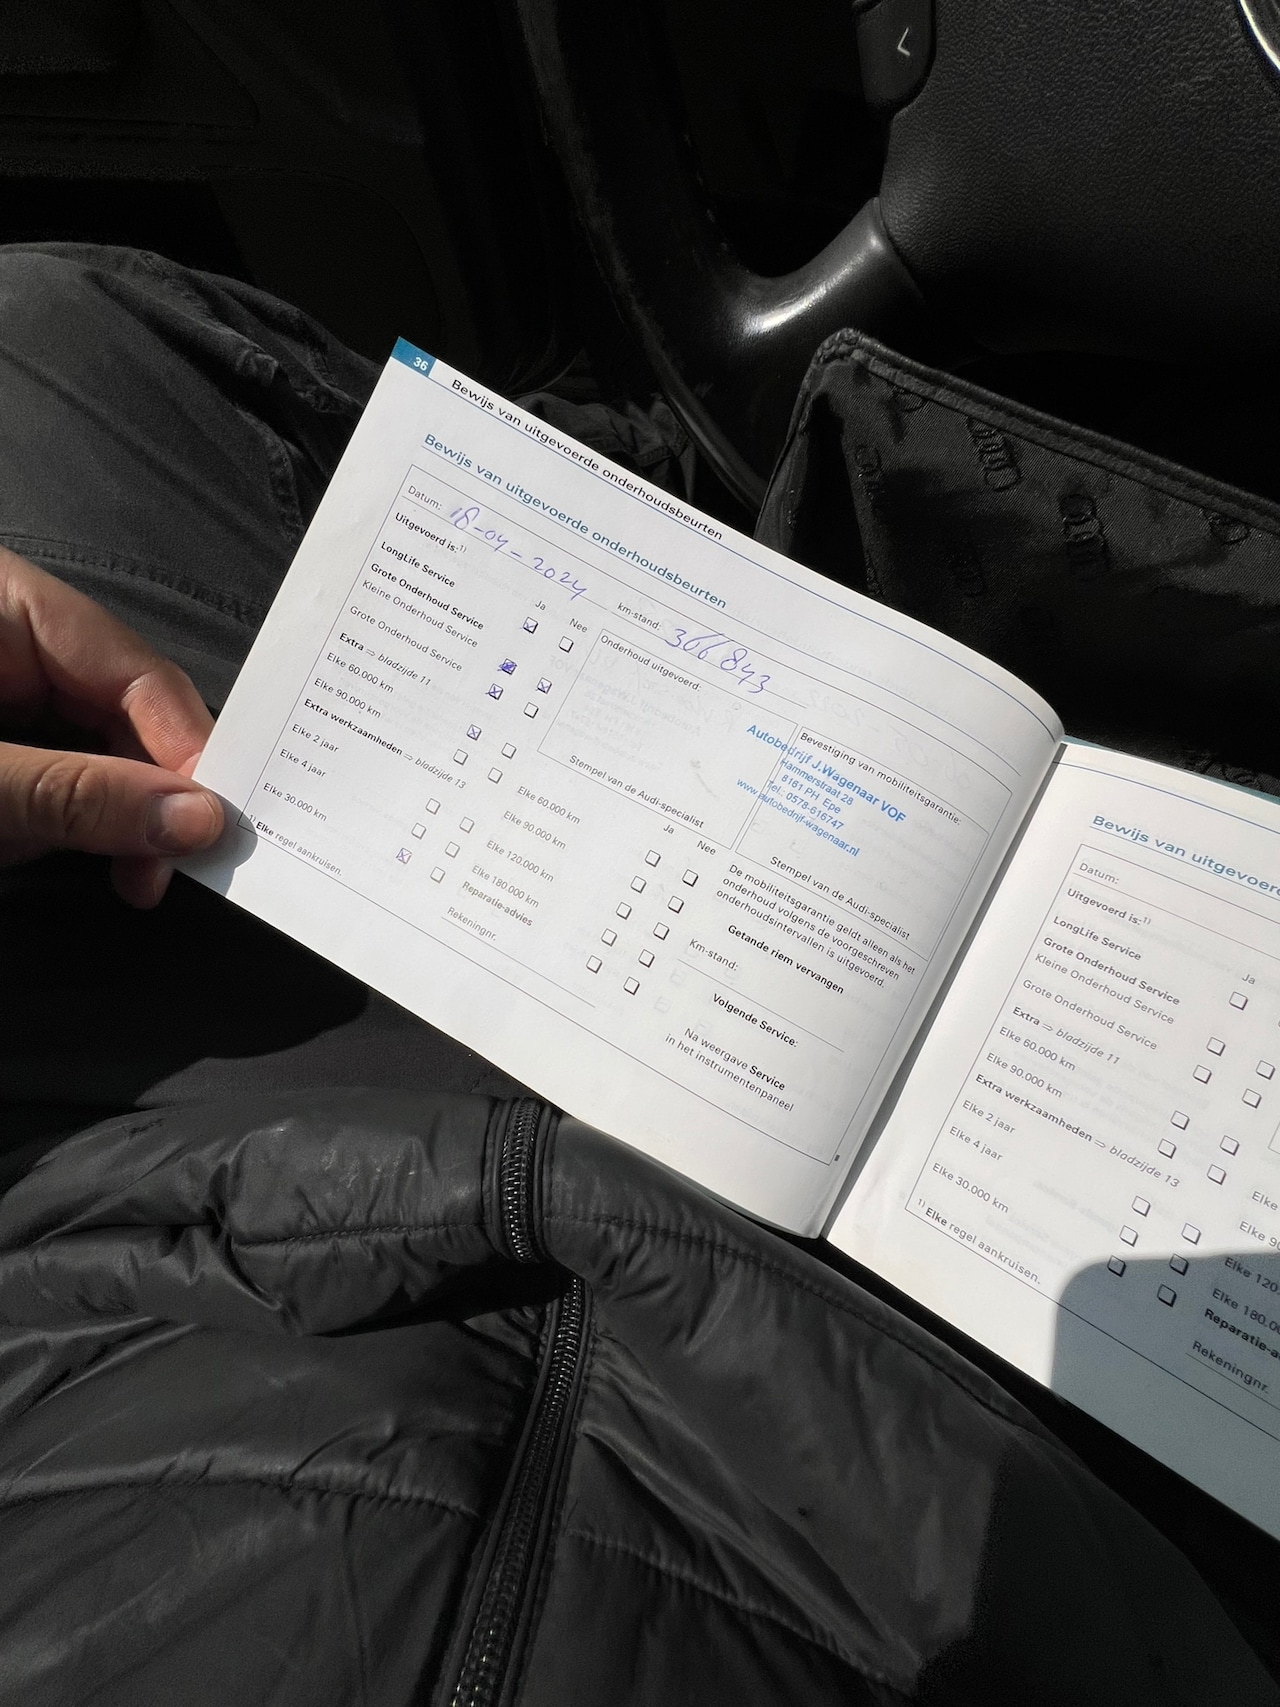 36
Bewijs van uitgevoerde onderhoudsbeurten
Bewijs van uitgevoerde onderhoudsbeurten
Datum: 18-04-2024 km-stand: 366843
Uitgevoerd is:1)
LongLife Service
Grote Onderhoud Service
Kleine Onderhoud Service
Grote Onderhoud Service
Extra ⇒ bladzijde 11
Elke 60.000 km
Elke 90.000 km
Extra werkzaamheden ⇒ bladzijde 13
Elke 2 jaar
Elke 4 jaar
Elke 30.000 km
1) Elke regel aankruisen.
Ja Nee
Onderhoud uitgevoerd:
Stempel van de Audi-specialist
Ja Nee
Elke 60.000 km
Elke 90.000 km
Elke 120.000 km
Elke 180.000 km
Reparatie-advies
Rekeningnr.
Bevestiging van mobiliteitsgarantie:
Autobedrijf J.Wagenaar VOF
Hammerstraat 28
8161 PH Epe
Tel. 0578-616747
www.autobedrijf-wagenaar.nl
Stempel van de Audi-specialist
De mobiliteitsgarantie geldt alleen als het
onderhoud volgens de voorgeschreven
onderhoudsintervallen is uitgevoerd.
Getande riem vervangen
Km-stand:
Volgende Service:
Na weergave Service
in het instrumentenpaneel
Bewijs van uitgevoerd
Datum:
Uitgevoerd is:1)
LongLife Service
Grote Onderhoud Service
Kleine Onderhoud Service
Grote Onderhoud Service
Extra ⇒ bladzijde 11
Elke 60.000 km
Elke 90.000 km
Extra werkzaamheden ⇒ bladzijde 13
Elke 2 jaar
Elke 4 jaar
Elke 30.000 km
1) Elke regel aankruisen.
Ja
Elke
Elke 90
Elke 120.
Elke 180.0
Reparatie-a
Rekeningnr.